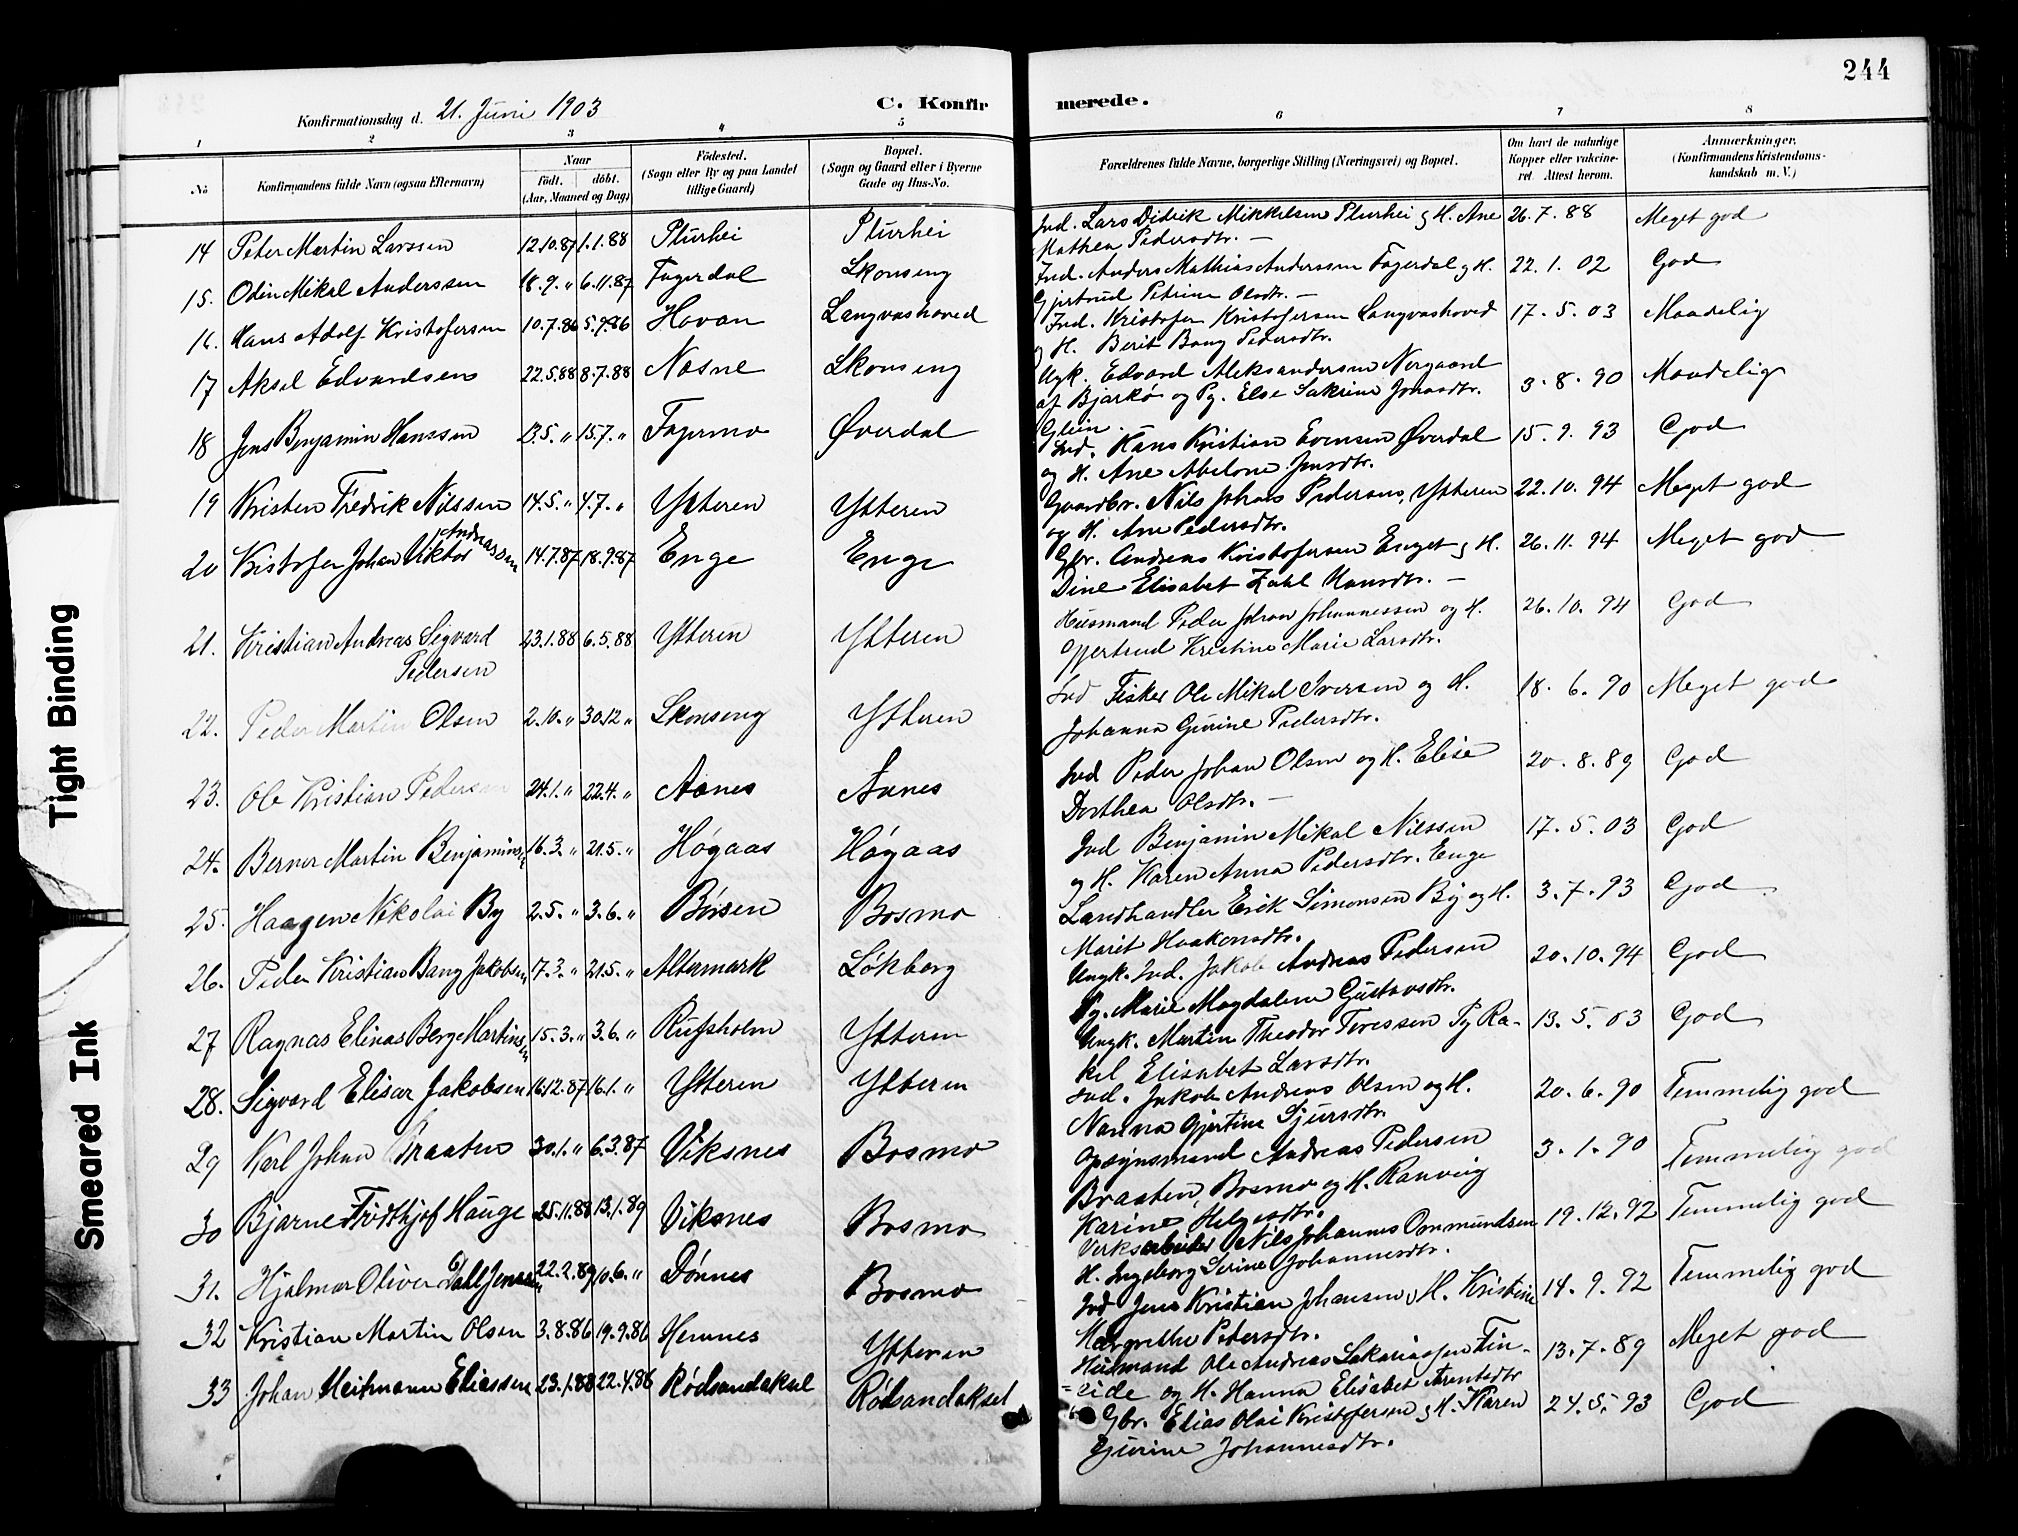 244
Konfirmationsdag d. 21. Juni 1903
C. Konfirmerede.
1 2 3 4 5 6 7 8
No
Konfirmandens fulde Navn (ogsaa Efternavn)
Naar
Födt. döbt.
(Aar, Maaned og Dag)
Födested.
(Sogn eller By og paa Landet
tillige Gaard)
Bopæl.
(Sogn og Gaard eller i Byerne
Gade og Hus-No.
Forældrenes fulde Navne, borgerlige Stilling (Næringsvei) og Bopæl.
Om havt de naturlige
Kopper eller vakcine-
ret. Attest herom.
Anmærkninger.
(Konfirmandens Kristendoms-
kundskab m. V.)
14 Peter Martin Larssen 12.10.87 1.1.88 Plurhei Plurhei Ind. Lars Didrik Mikkelsen Plurhei g H. Ane 26.7.88 Meget god
Mathea Pedersdtr. —
15. Odin Mikal Anderssen 18.9. " 6.11.87 Fagerdal Skonseng Ind. Anders Mathias Anderssen Fagerdal g H. 22.1.02 God
Gjertrud Petrine Olsdtr. —
16. Hans Adolf Kristofersen 10.7.86 5.9.86 Hovan Langvashoved Ind. Kristofer Kristofersen Langvashoved 17.5.03 Maadelig
g H. Berit Bang Pedersdtr.
17 Aksel Edvardsen 22.5.88 8.7.88 Nesne Skonseng Ugk. Edvard Aleksandersen Nergaard
af Bjarkø og Pg. Else Sakrine Jonasdtr. 3.8.90 Maadelig
Glein.
18 Jens Benjamin Hanssen 13.5. " 15.7. " Fagermo Øverdal Ind. Hans Kristian Evensen Øverdal 15.9.93 God
og H. Ane Abelone Jensdtr.
19 Kristen Fredrik Nilssen 14.5. " 4.7. " Ytteren Ytteren Gaardbr. Nils Johan Pedersen, Ytteren 22.10.94 Meget god
og H. Ane Pedersdtr.
20 Kristofer Johan Viktor Andreassen 14.7.87 18.9.87 Enge Enge Gbr. Andreas Kristofersen Enget g H. 26.11.94 Meget god
Dine Elisabet Zahl Hansdtr. —
21. Kristian Andreas Sigvard 23.1.88 6.5.88 Ytteren Ytteren Husmand Peder Johan Johannessen og H. 26.10.94 God
Pedersen Gjertrud Kristine Marie Larsdtr.
22. Peder Martin Olsen 2.10. " 30.12 " Skonseng Ytteren Ind Fisker Ole Mikal Iversen og H. 18.6.90 Meget god
Johanna Gjurine Pedersdtr.
23. Ole Kristian Pedersen 24.1. " 22.4. " Aanes Aanes Ind Peder Johan Olsen og H. Elise 20.8.89 God
Dorthea Olsdtr. —
24. Berner Martin Benjaminsen 16.3. " 21.5. " Høgaas Høgaas Ind Benjamin Mikal Nilssen 17.5.03 God
og H. Karen Anna Pedersdtr. Enge
25. Haagen Nikolai By 2.5. " 3.6. " Børsen Bosmo Landhandler Erik Simonsen By og H. 3.7.93 God
Marit Haakonsdtr.
26. Peder Kristian Bang Jakobsen 17.3. " 21.5. " Altermark Løkberg Ungk. Ind. Jakob Andreas Pedersen 20.10.94 God
Pg. Marie Magdalene Gustavsdtr.
27 Ragnas Elinas Berg Martinsen 15.3. " 3.6. " Rufsholm Ytteren Ungk. Martin Theodor Toressen Pg Ra- 13.5.03 God
kel Elisabet Larsdtr.
28. Sigvard Elisar Jakobsen 16.12.87 16.1. " Ytteren Ytteren Ind. Jakob Andreas Olsen og H. 20.6.90 Temmelig god
Nanna Gjertine Sjursdtr.
29 Karl Johan Braaten 30.1. " 6.3.87 Viksnes Bosmo Opsynsmand Andreas Pedersen 3.1.90 Temmelig god
Braaten, Bosmo og H. Ranveig
Karine Helgesdtr.
30 Bjarne Fridthjof Hauge 25.11.88 13.1.89 Viksnes Bosmo Verksarbeider Nils Johannes Ommundsen 19.12.92 Temmelig god
H. Ingeborg Serine Johannesdtr.
31. Hjalmar Oliver Dahl Jensen 22.2.89 10.6. " Dønnes Bosmo Ind Jens Kristian Johansen, H. Kristine 14.9.92 Temmelig god
Margrethe Pedersdtr.
32 Kristian Martin Olsen 3.8.86 19.9.86 Hemnes Ytteren Husmand Ole Andreas Sakariassen Fin- 13.7.89 Meget god
=eide og H. Hanna Elisabet Arentsdtr
33 Johan Heitmann Eliassen 23.1.88 22.4.86 Rødsandaksel Rødsandaksel Gbr. Elias Olai Kristofersen g H. Karen 24.5.93 God
Gjurine Johannesdtr.
Tight Binding
Smeared Ink